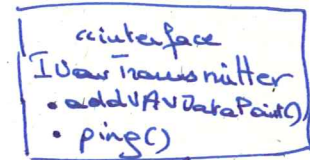 «interface
IVavTransmitter
• addVAVDataPoint()
• ping()